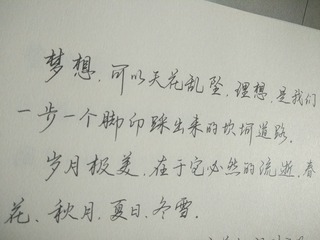 梦想,可以天花乱坠,理想,是我们
一步一个脚印踩出来的坎坷道路.
岁月极美,在于它必然的流逝.春
花、秋月、夏日、冬雪.